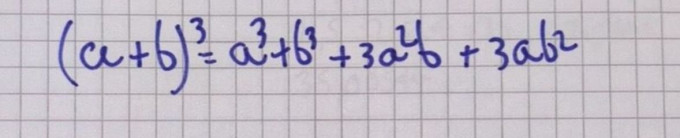 (a+b)³=a³+b³+3a²b+3ab²